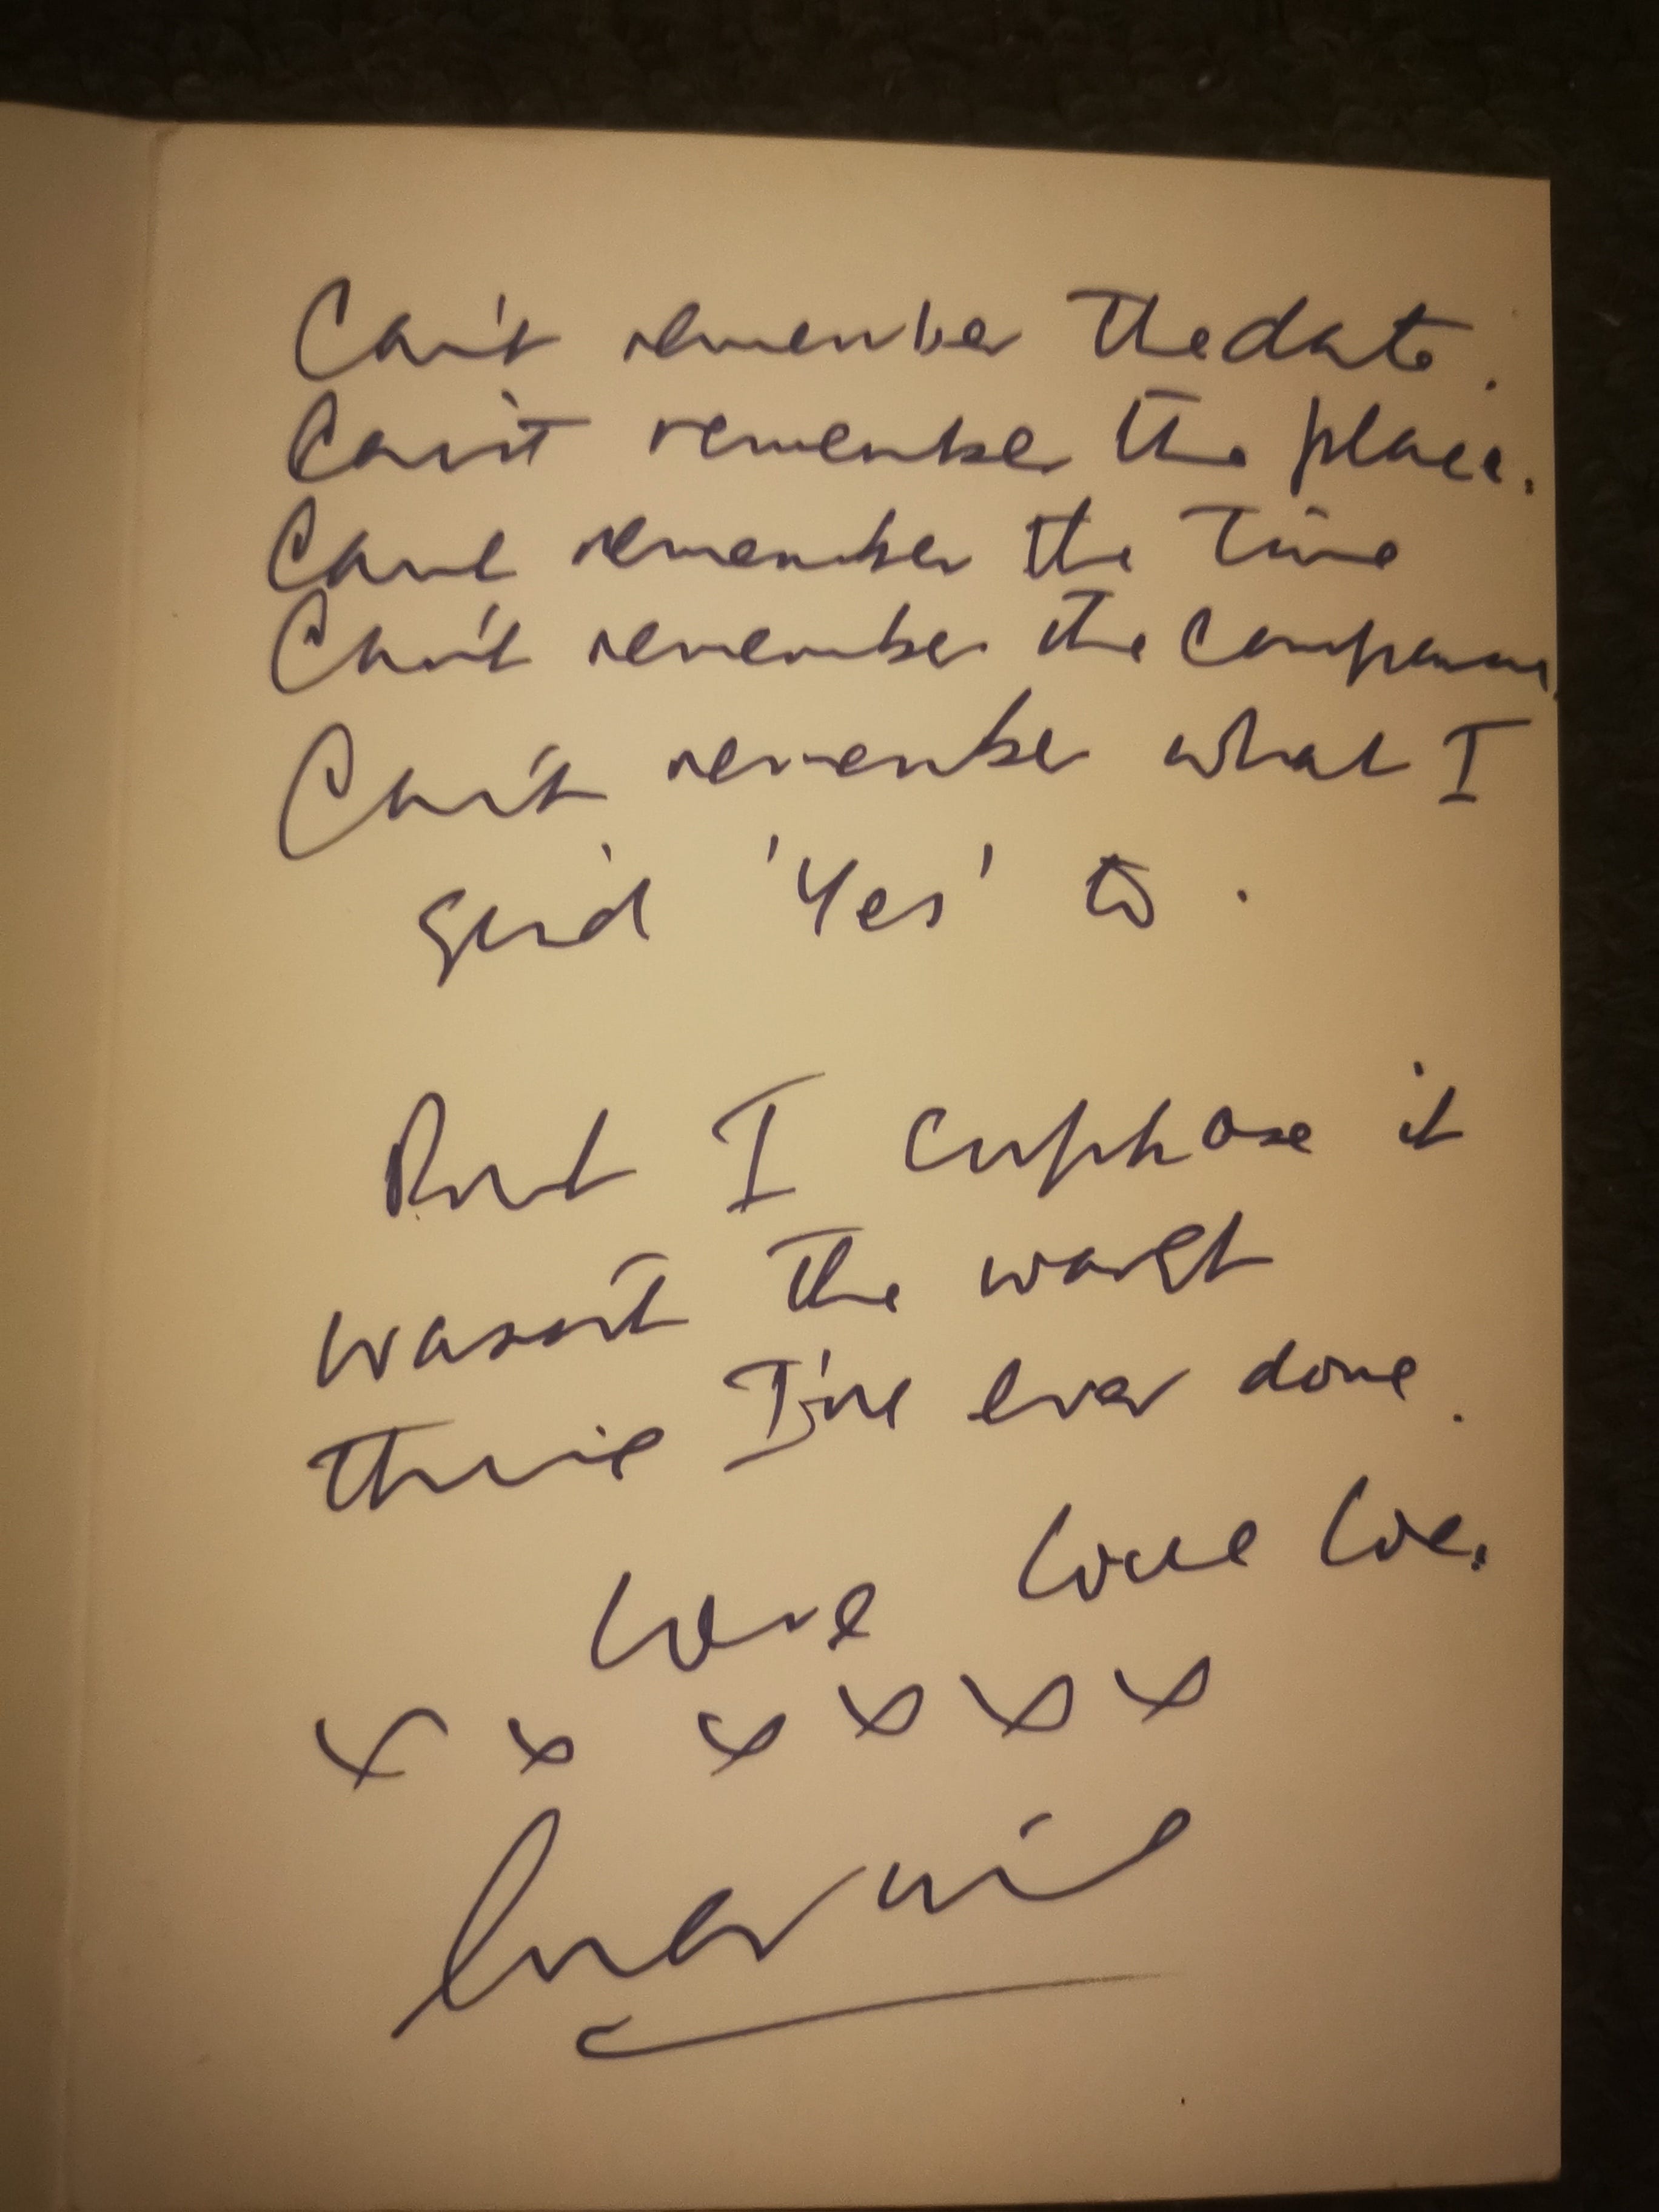 Can't remember the date.
Can't remember the place.
Can't remember the Time
Can't remember the company.
Can't remember what I
said 'Yes' to.
But I suppose it
wasn't the worst
thing I've ever done.
Love Love Love.
x x x x x x